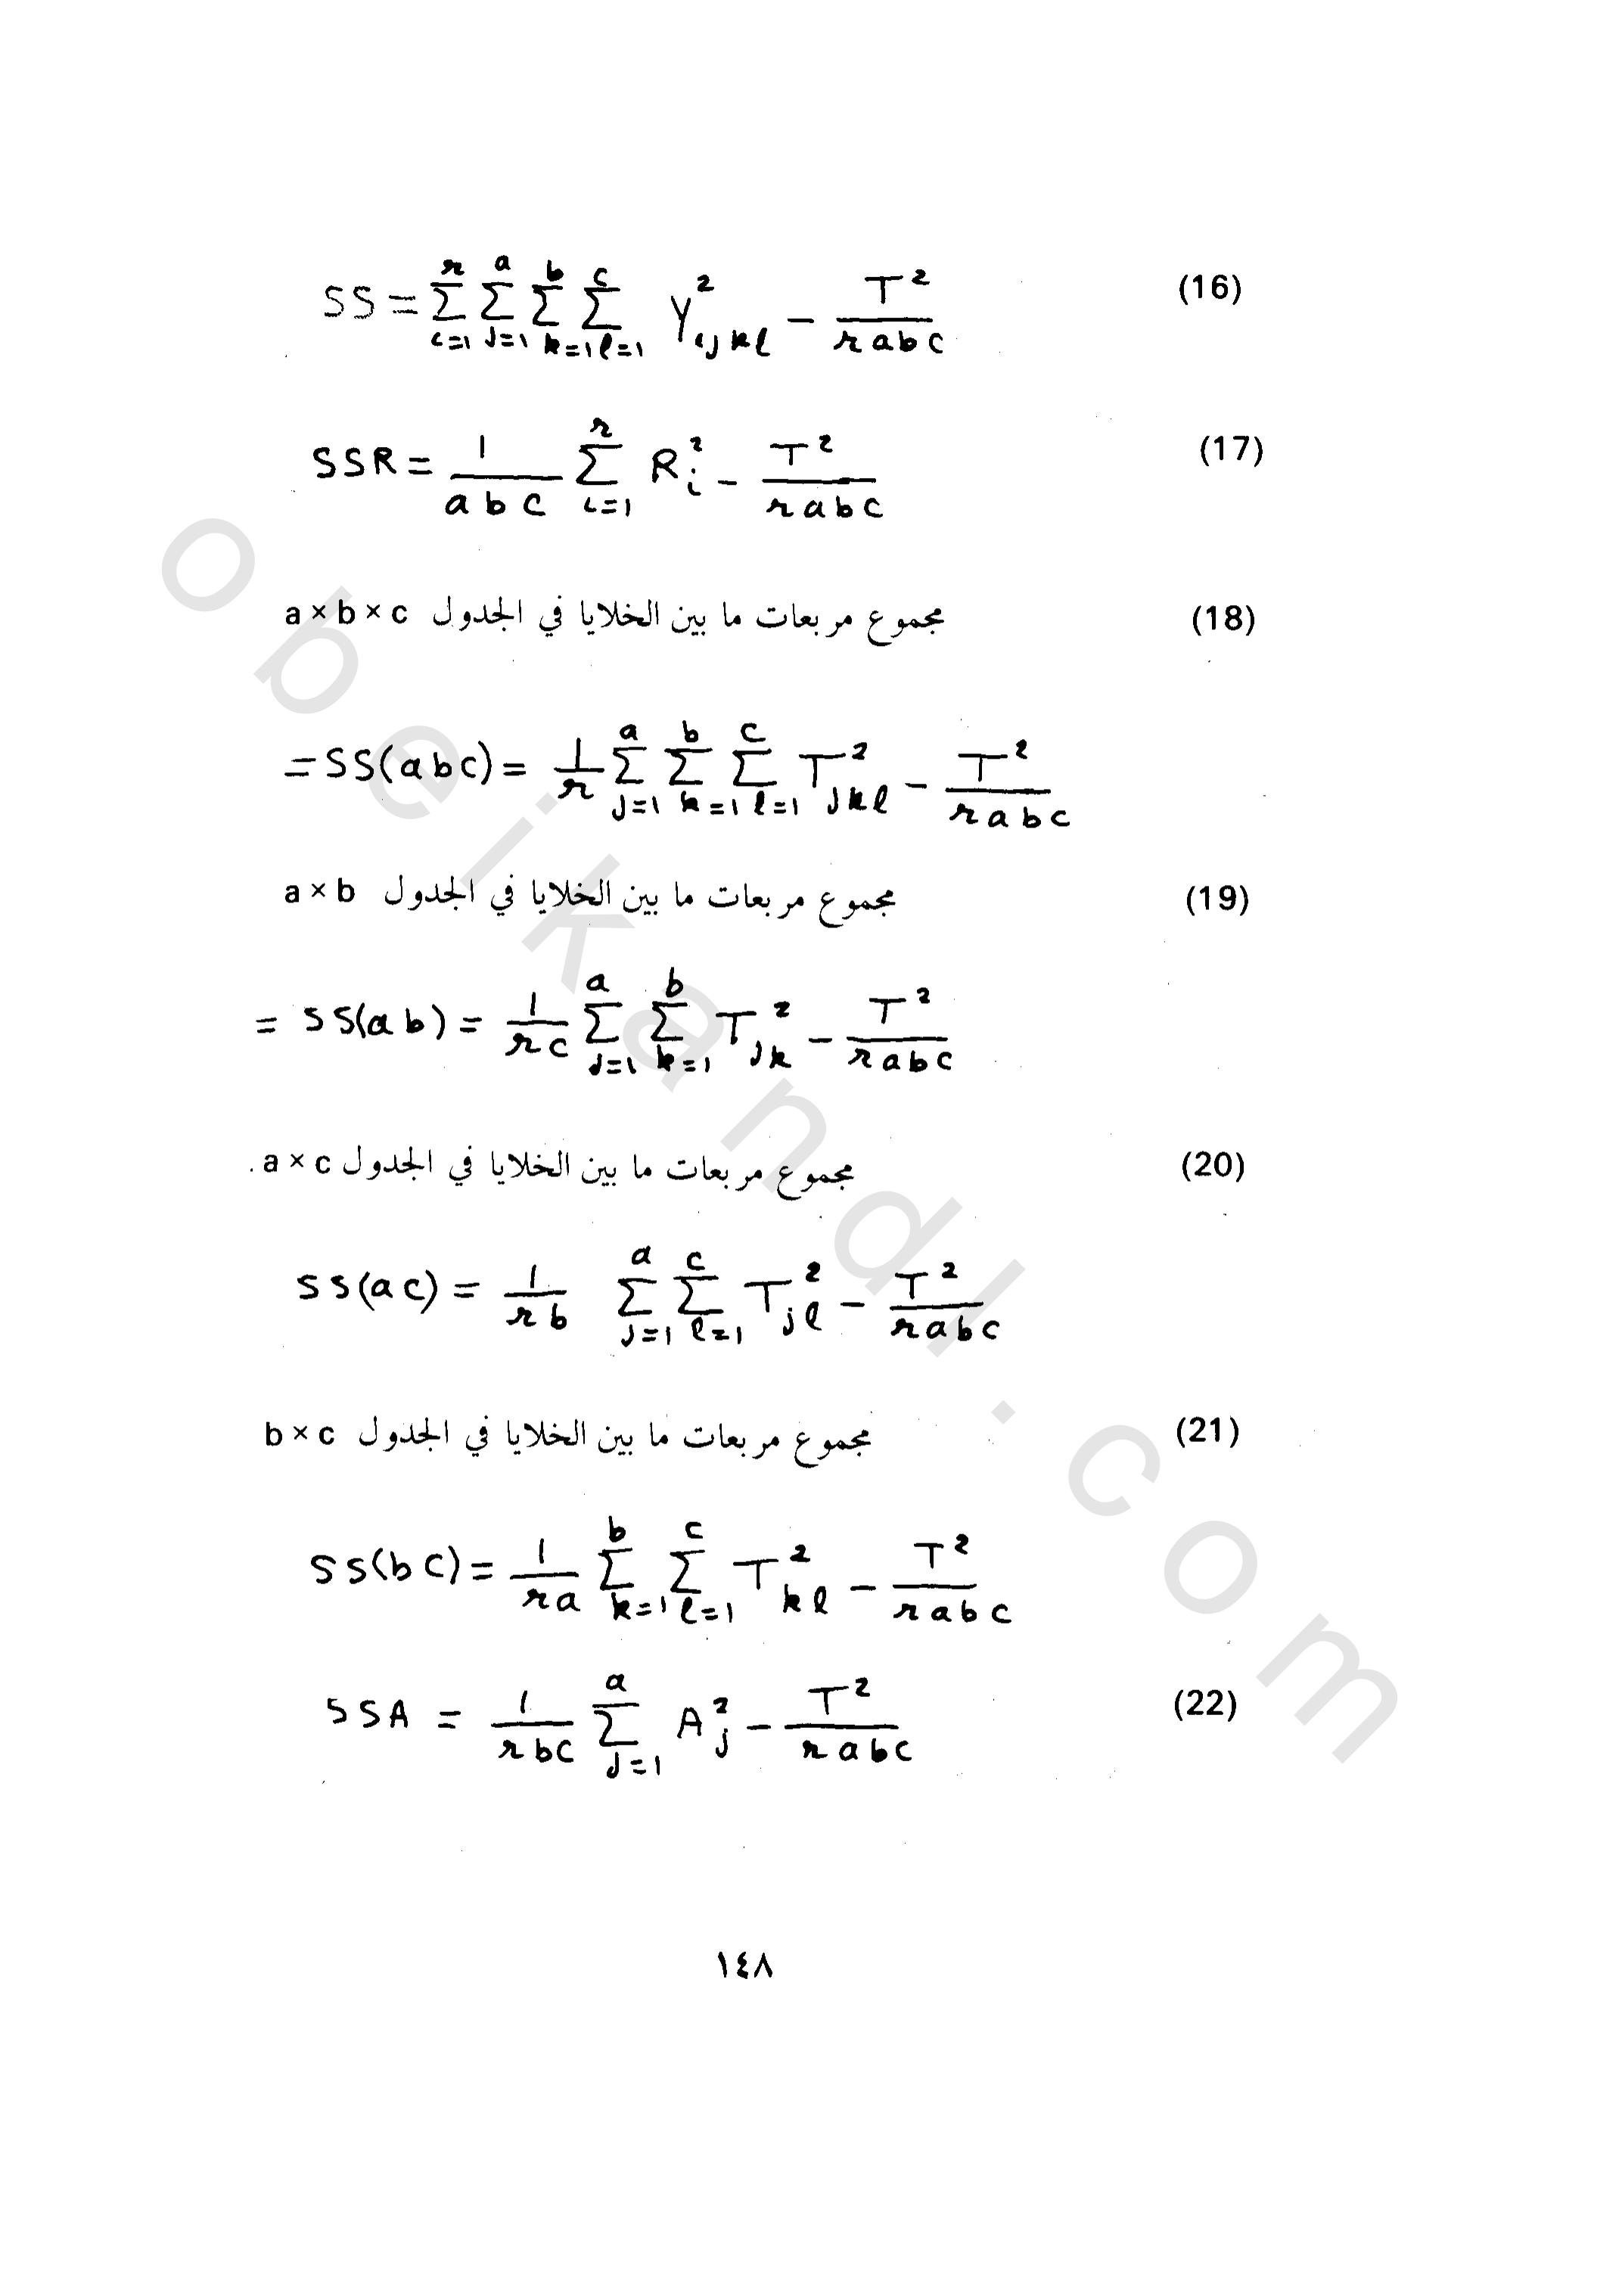 (16) SS = \sum_{i=1}^{r} \sum_{j=1}^{a} \sum_{k=1}^{b} \sum_{l=1}^{c} Y_{ijkl}^{2} - \frac{T^{2}}{rabc}
(17) SSR = \frac{1}{abc} \sum_{i=1}^{r} R_{i}^{2} - \frac{T^{2}}{rabc}
(18) مجموع مربعات ما بين الخلايا في الجدول a × b × c
= SS(abc) = \frac{1}{r} \sum_{j=1}^{a} \sum_{k=1}^{b} \sum_{l=1}^{c} T_{jkl}^{2} - \frac{T^{2}}{rabc}
(19) مجموع مربعات ما بين الخلايا في الجدول a × b
= SS(ab) = \frac{1}{rc} \sum_{j=1}^{a} \sum_{k=1}^{b} T_{jk}^{2} - \frac{T^{2}}{rabc}
(20) مجموع مربعات ما بين الخلايا في الجدول a × c .
SS(ac) = \frac{1}{rb} \sum_{j=1}^{a} \sum_{l=1}^{c} T_{jl}^{2} - \frac{T^{2}}{rabc}
(21) مجموع مربعات ما بين الخلايا في الجدول b × c
SS(bc) = \frac{1}{ra} \sum_{k=1}^{b} \sum_{l=1}^{c} T_{kl}^{2} - \frac{T^{2}}{rabc}
(22) SSA = \frac{1}{rbc} \sum_{j=1}^{a} A_{j}^{2} - \frac{T^{2}}{rabc}
١٤٨
obeikandl.com